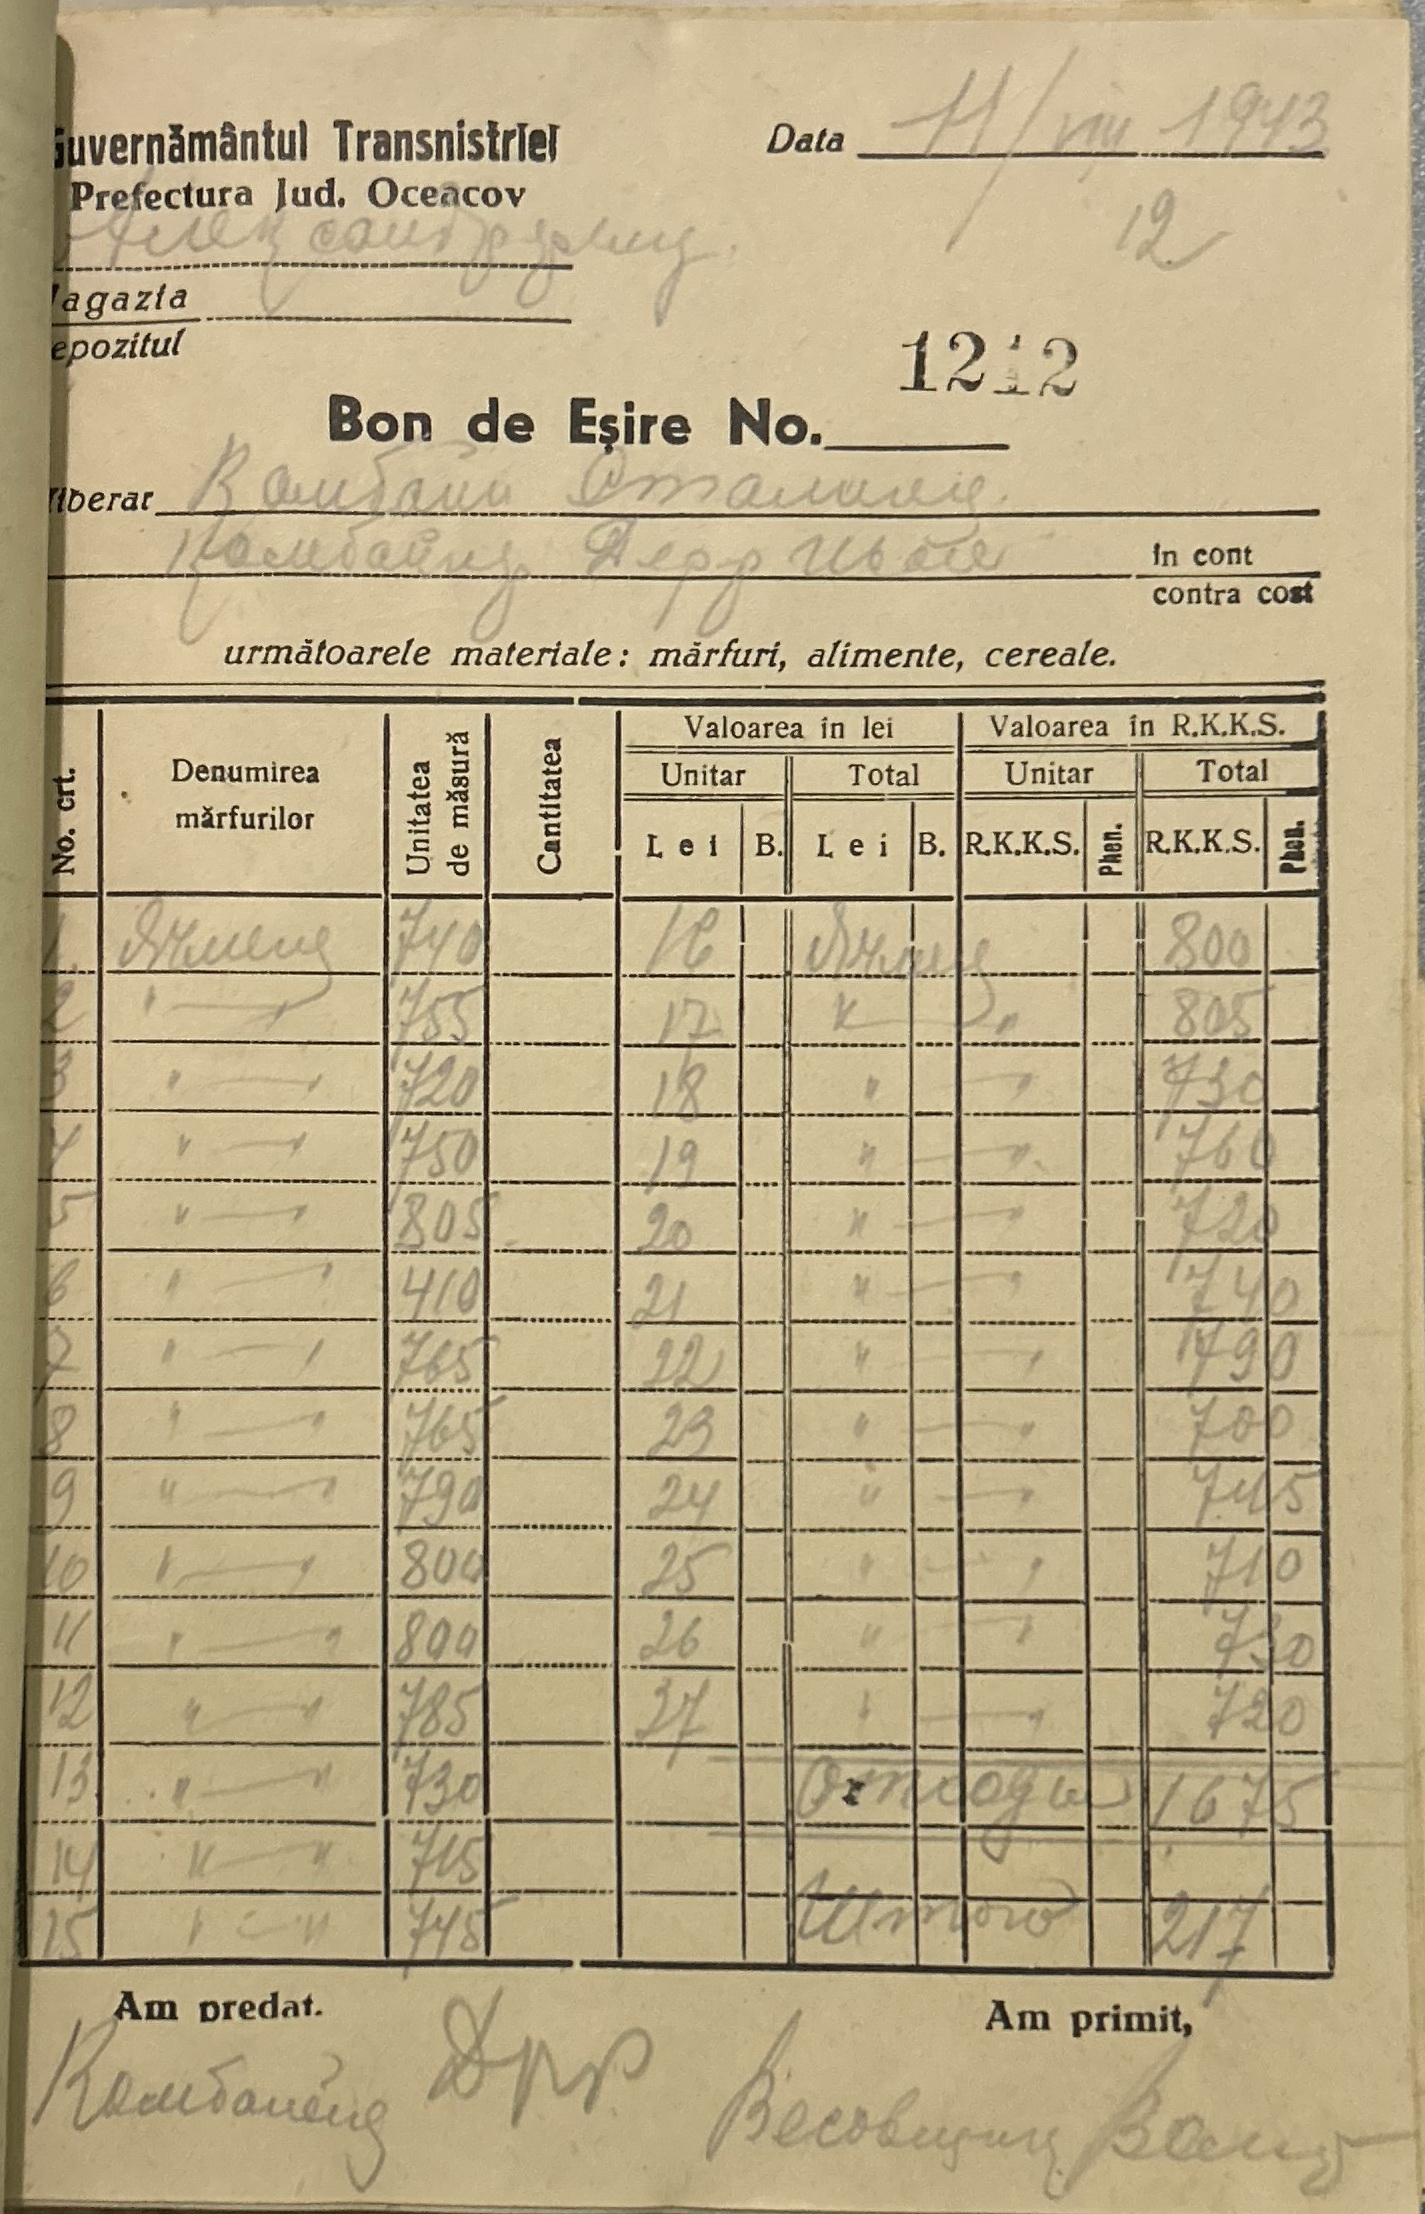 Guvernământul Transnistriei
Data 11/VIII 1943
Prefectura Jud. Oceacov
12
Magazia
Depozitul
1212
Bon de Eşire No.
liberar Комбайн Сталинец
Комбайнер Дерр
in cont
contra cost
următoarele materiale: mărfuri, alimente, cereale.
No. crt. Denumirea mărfurilor Unitatea de măsură Cantitatea Valoarea în lei Valoarea în R.K.K.S.
Unitar Total Unitar Total
Lei B. Lei B. R.K.K.S. Phen. R.K.K.S. Phen.
1 Ячмень 740 16 Ячмень 800
2 " — " 755 17 " — " 805
3 " — " 720 18 " — " 730
4 " — " 750 19 " — " 760
5 " — " 805 20 " — " 720
6 " — " 410 21 " — " 740
7 " — " 765 22 " — " 790
8 " — " 765 23 " — " 700
9 " — " 790 24 " — " 745
10 " — " 800 25 " — " 710
11 " — " 800 26 " — " 730
12 " — " 785 27 " — " 720
13 " — " 730 Отходы 1675
14 " — " 715
15 " — " 745 Итого 217
Am predat. Am primit,
Комбайнер Дерр Весовщик